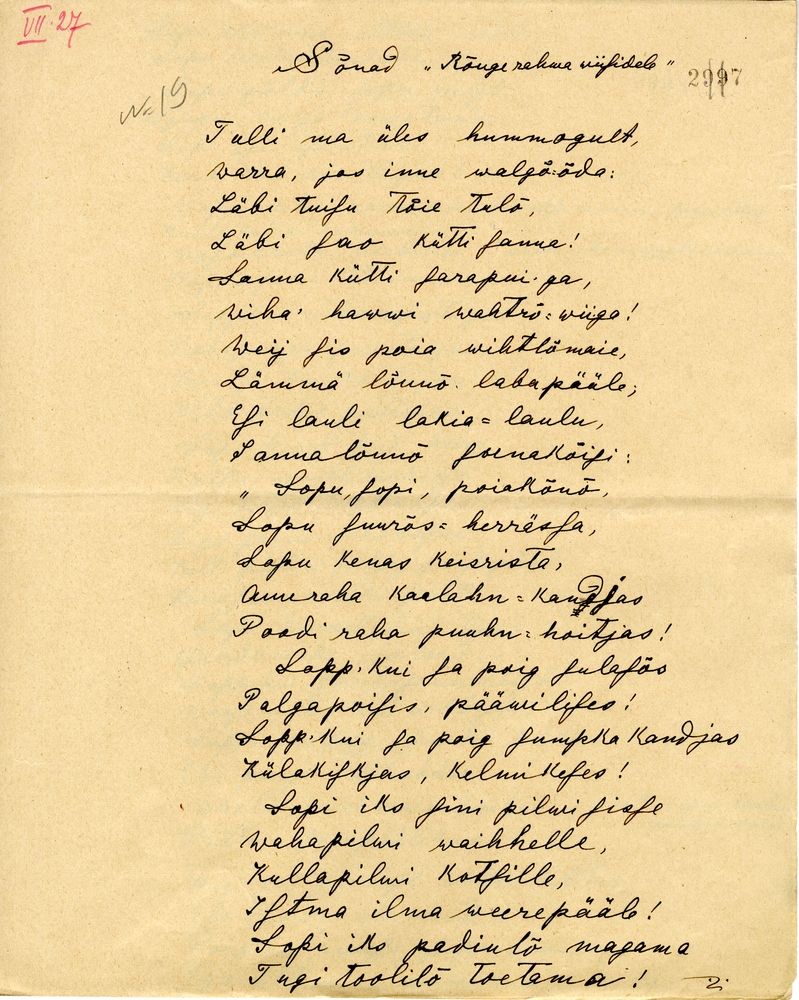 VII. 27
Sõnad „Rõuge rahwa wiisidele"
2997
№ 19
Tulli ma üles hummogult,
warra, jos inne walgõ=õda:
Läbi tuisu tõie tulõ,
Läbi sao kütti sanna!
Sanna kütti sarapui-ga,
wiha' hawwi wahtrõ=wiiga!
Weij sis poia wihtlõmaie,
Lämmä lõunõ labapääle;
Esi lauli lakia=laulu,
Sannalõunõ soenakõisi:
„Sopu, sopi, poiakõnõ,
Sopu suurõs=herräsfa,
Sopu kenas keisrista,
Anneraha kaalahn=kandjas
Poodi raha puuhn=hoitjas!
Sopp-kui sa poig sulasõs
Palgapoisis, pääwilises!
Sopp-kui sa poig sumpka kandjas
Külakiskjas, kelmikeses!
Sopi iks sini pilwi sisse
wahapilwi waihhelle,
Kullapilwi kotsille,
Istma ilma weerepääle!
Sopi iks padiulõ magama
Tugi toolilõ toetama!